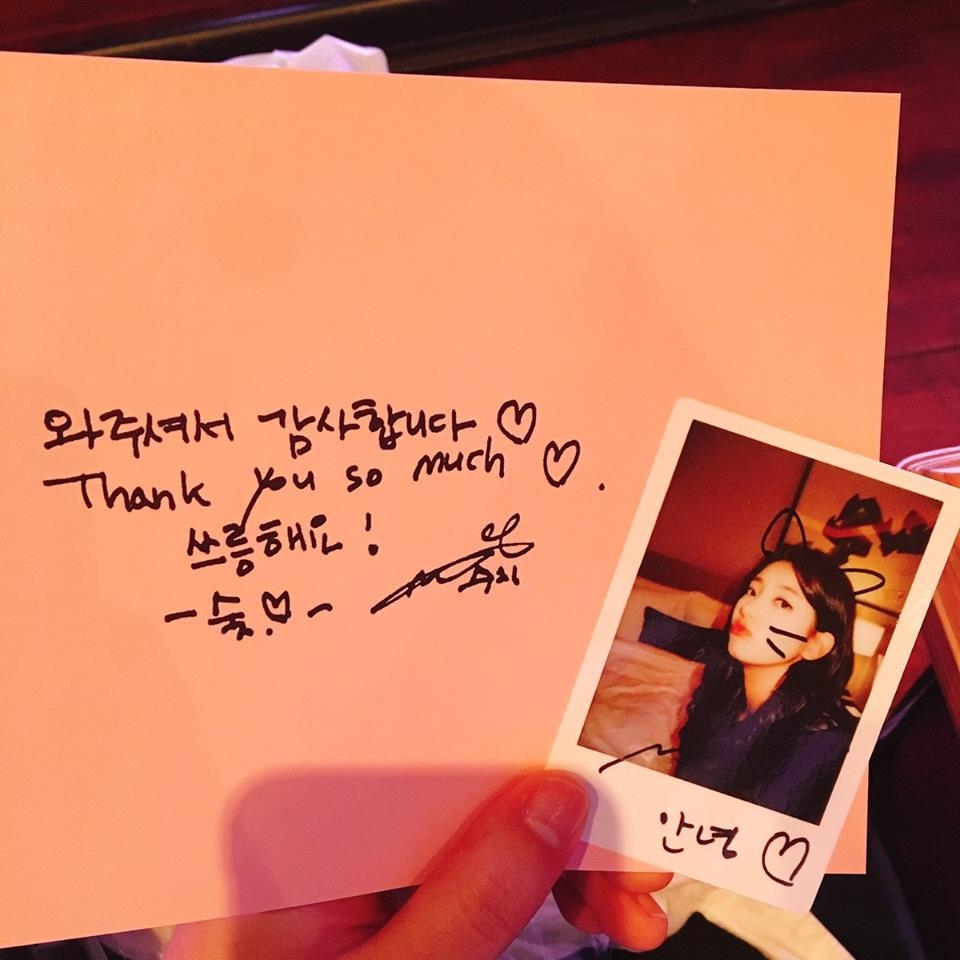 와주셔서 감사합니다 ♡
Thank you so much ♡.
쓰릉해요!
-숮.♡-
수지
안녕 ♡